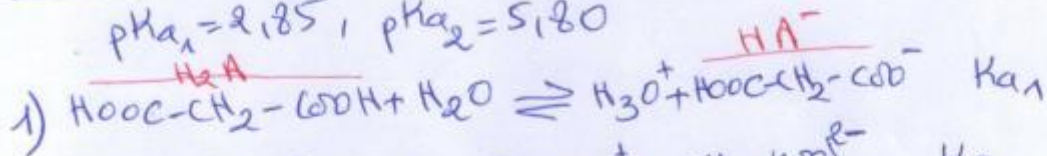 pKa₁ = 2,85, pKa₂ = 5,80
H₂A HA⁻
1) HOOC-CH₂-COOH + H₂O ⇌ H₃O⁺ + HOOC-CH₂-COO⁻ Ka₁